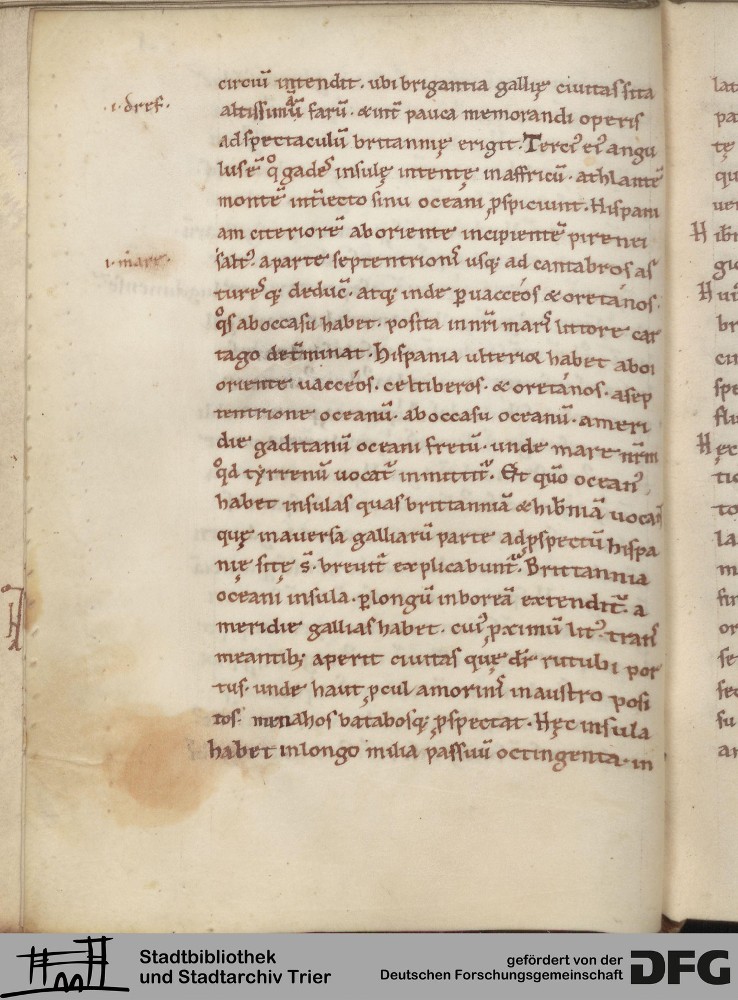 ·i· dref·
·i· mare·
circiū intendit· ubi brigantia gallię ciuitas sita
altissimū farū· & int̄ pauca memorandi operis
ad spectaculū brittannię erigit· Terci' ei' angu
lus ē q̊ gades insulę intentę in affricū· athlantē
montē int̄iecto sinu oceani ꝓspiciunt· Hispani
am citeriorē ab oriente incipientē pirenei
salt'· a parte septentrionis usq; ad cantabros as
turesq; deduc̄· atq; inde ꝑ uaccéos & oretános·
q̊s ab occasu habet· posita in nr̄i maris littore car
tago det̄minat· Hispania ulterior habet aboi
oriente uaccéos· celtiberos· & oretános· a sep
tentrione oceanū· ab occasu oceanū· a meri
die gaditanū oceani fretū· unde mare nr̄m
q̊d tyrrenū uocat̄ inmittit̄· Et quō ocean'
habet insulas quas brittanniā & hib̄niā uocant
quę in auersa galliarū parte ad ꝓspectū hispa
nię sitę s̄· breuit̄ explicabunt̄· Brittannia
oceani insula· ꝑ longū in boreā extendit̄· a
meridie gallias habet· cui' ꝓximū lit'· trans
meantib; aperit ciuitas quę dr̄ rutubi por
tus· unde haut ꝓcul a morinis in austro posi
tos· menahos batabosq; ꝓspectat· Hęc insula
habet in longo milia passuū octingenta· in
H
lat
pa
tę
qu
uer
H ibı
gic
H
br
cu
spe
flu
H ęc
tic
to
la
m
fin
or
se
sec
su
ar
Stadtbibliothek
und Stadtarchiv Trier
gefördert von der
Deutschen Forschungsgemeinschaft
DFG